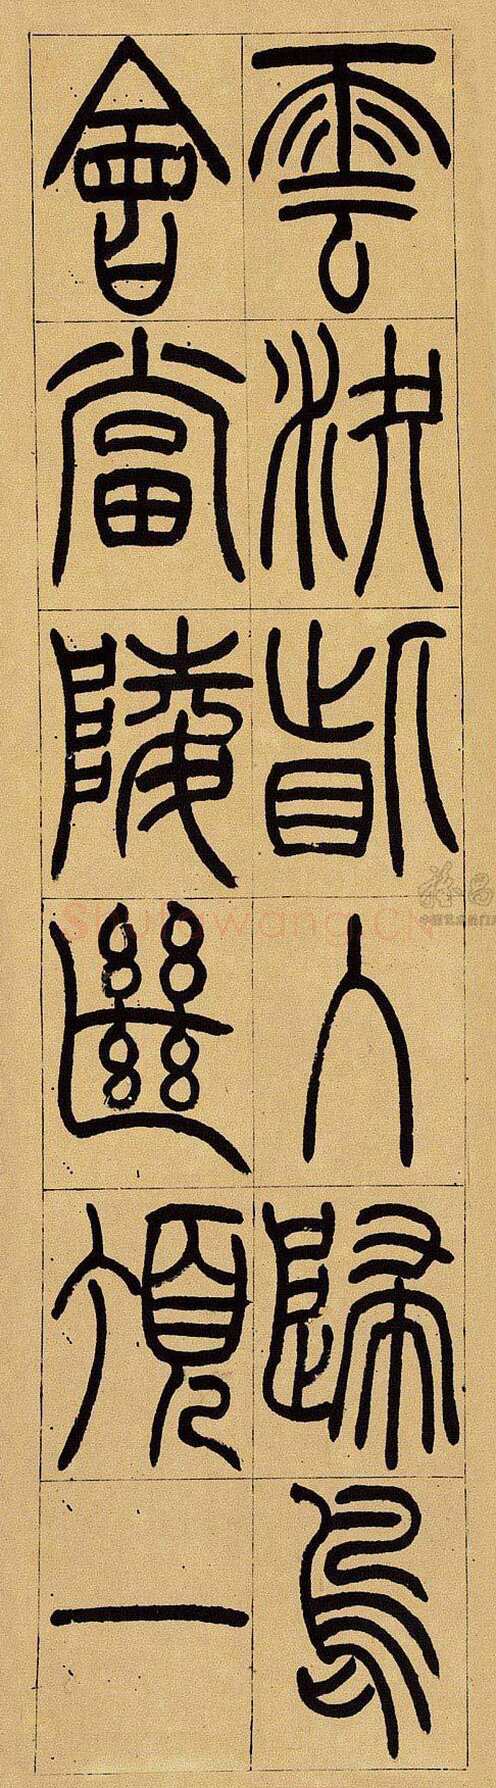 雲決眥入歸鳥
會當陵絕頂一
Shufawang.CN